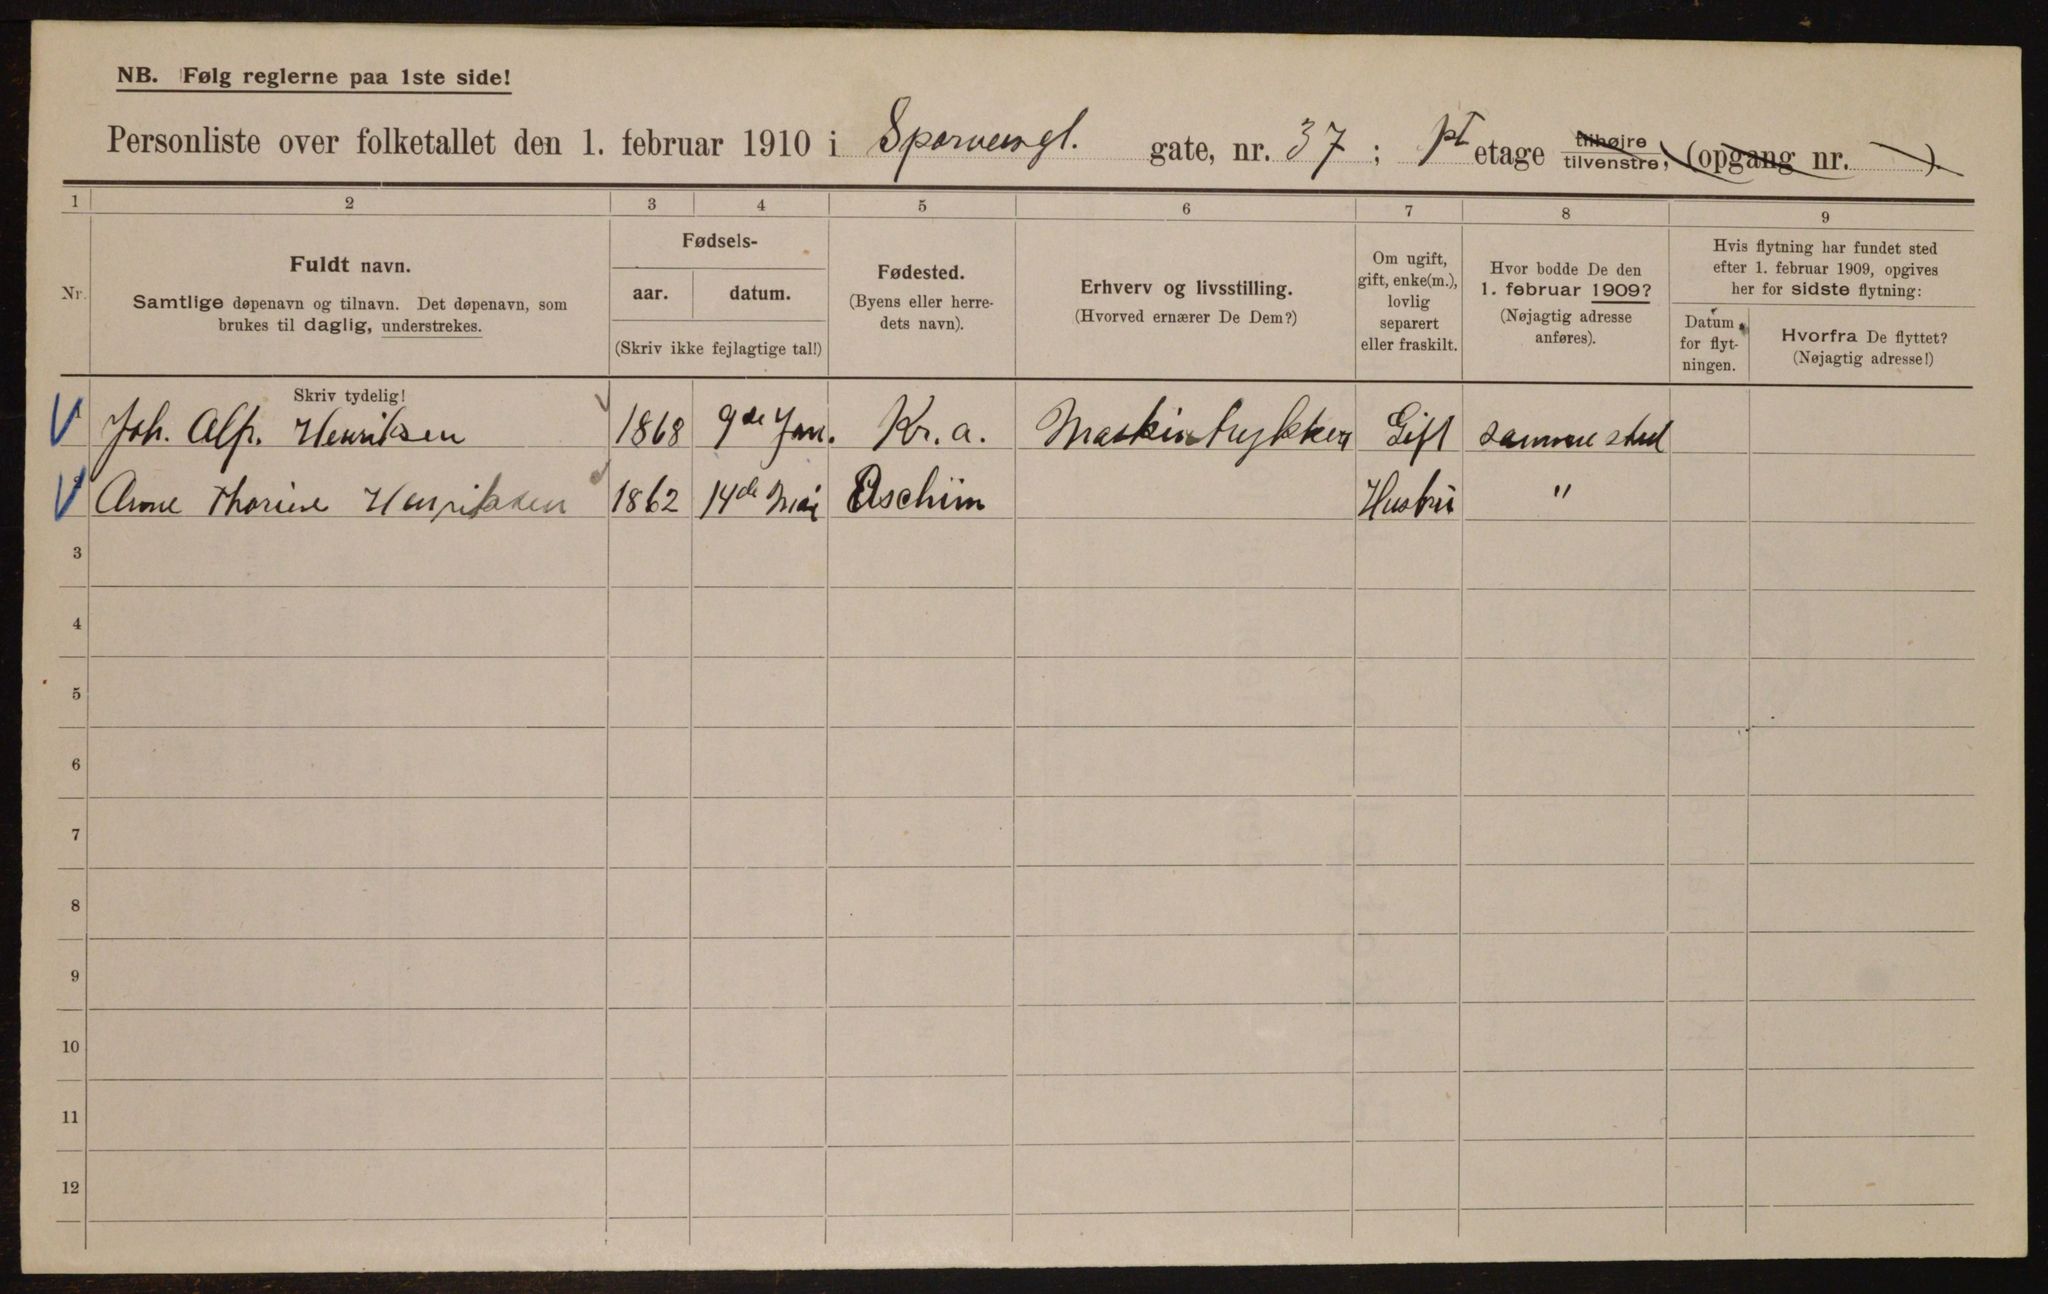 NB. Følg reglerne paa 1ste side!
Personliste over folketallet den 1. februar 1910 i Sporveisgt. gate, nr. 37; 1st etage tilhøjre tilvenstre, (opgang nr. ).
1 2 3 4 5 6 7 8 9
Nr.
Fuldt navn.
Samtlige døpenavn og tilnavn. Det døpenavn, som
brukes til daglig, understrekes.
Fødsels-
aar. datum.
(Skriv ikke fejlagtige tal!)
Fødested.
(Byens eller herre-
dets navn).
Erhverv og livsstilling.
(Hvorved ernærer De Dem?)
Om ugift,
gift, enke(m.),
lovlig
separert
eller fraskilt.
Hvor bodde De den
1. februar 1909?
(Nøjagtig adresse
anføres).
Hvis flytning har fundet sted
efter 1. februar 1909, opgives
her for sidste flytning:
Datum
for flyt-
ningen.
Hvorfra De flyttet?
(Nøjagtig adresse!)
Skriv tydelig!
Joh. Alfr. Henriksen 1868 9de Jan. Kr.a. Maskintrykker Gift samme sted
Anne Thorine Henriksen 1862 14de Mai Eschim Hustru "
3
4
5
6
7
8
9
10
11
12